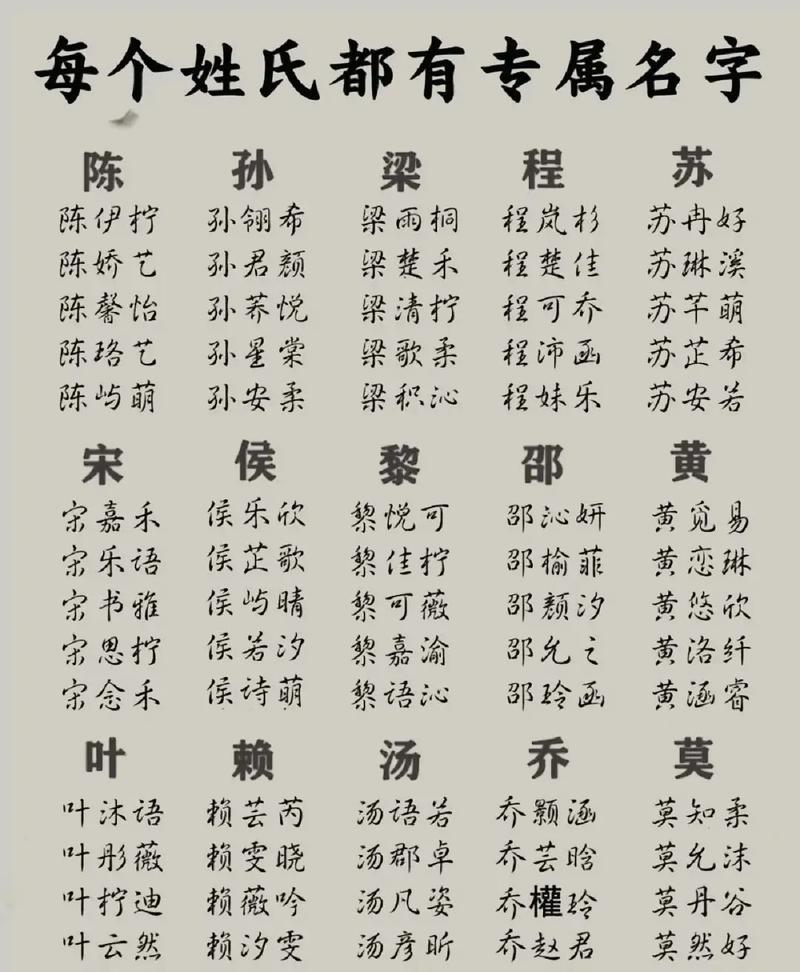 每个姓氏都有专属名字
陈 孙 梁 程 苏
陈伊柠 孙翎希 梁雨桐 程岚杉 苏冉好
陈娇艺 孙君颜 梁楚禾 程楚佳 苏琳溪
陈馨怡 孙荞悦 梁清柠 程可乔 苏芊萌
陈珞艺 孙星棠 梁歌柔 程沛函 苏芷希
陈屿萌 孙安柔 梁积沁 程妹乐 苏安若
宋 侯 黎 邵 黄
宋嘉禾 侯乐欣 黎悦可 邵沁妍 黄觅易
宋乐语 侯芷歌 黎佳柠 邵榆菲 黄恋琳
宋书雅 侯屿晴 黎可薇 邵颜汐 黄悠欣
宋思柠 侯若汐 黎嘉渝 邵允之 黄洛纤
宋念禾 侯诗萌 黎语沁 邵玲函 黄涵睿
叶 赖 汤 乔 莫
叶沐语 赖芸芮 汤语若 乔颢涵 莫知柔
叶彤薇 赖雯晓 汤郡卓 乔芸晗 莫允沫
叶柠迪 赖薇吟 汤凡姿 乔權玲 莫丹谷
叶云然 赖汐雯 汤彦昕 乔赵君 莫然好